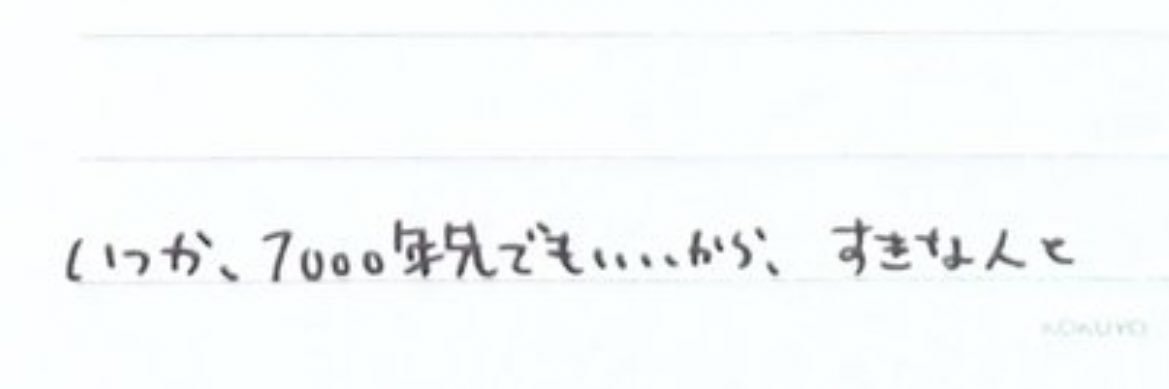 いつか、7000年先でもいいから、すきな人と
KOKUYO